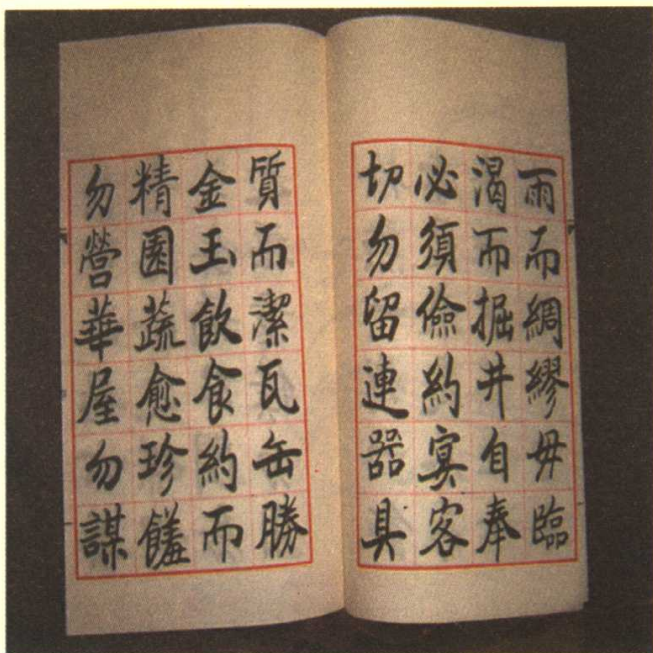 雨而綢繆毋臨
渴而掘井自奉
必須儉約宴客
切勿留連器具
質而潔瓦缶勝
金玉飲食約而
精園蔬愈珍饈
勿營華屋勿謀